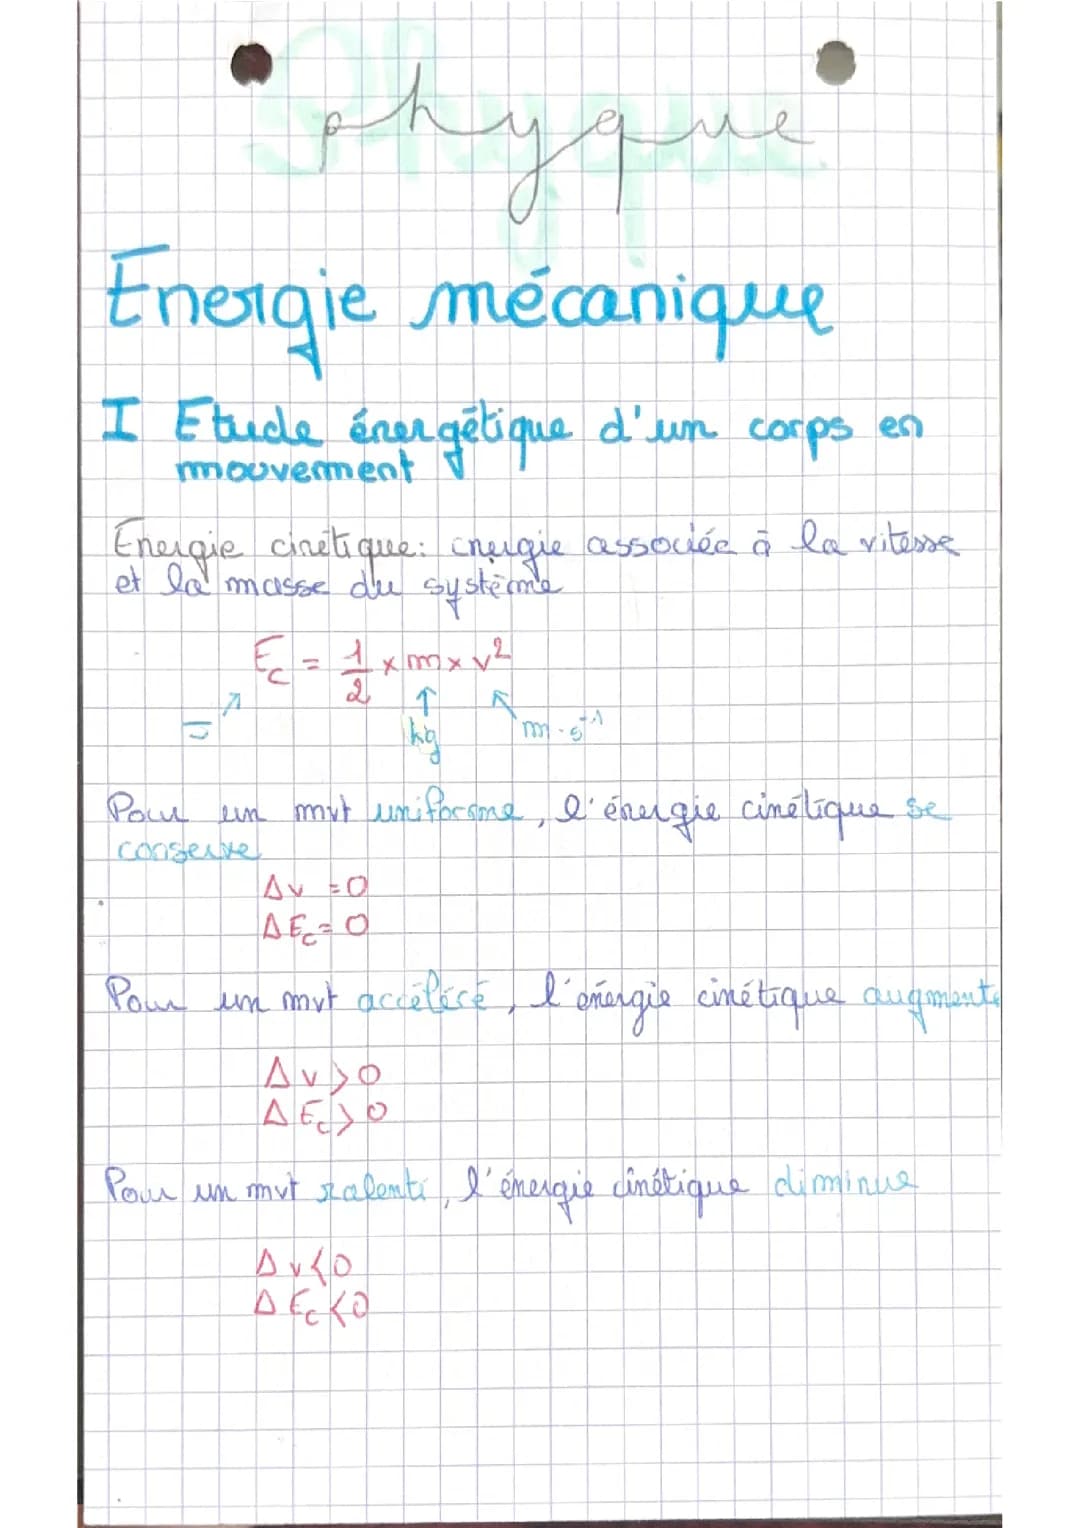 phyque
Energie mécanique
I Etude énergétique d'un corps en
mouvement
Energie cinétique: énergie associée à la vitesse
et la masse du système
Ec = 1/2 × m × v²
J kg m·s⁻¹
Pour un mvt uniforme, l'énergie cinétique se
conserve
Δv = 0
ΔEc = 0
Pour un mvt accéléré, l'énergie cinétique augmente
Δv > 0
ΔEc > 0
Pour un mvt ralenti, l'énergie cinétique diminue
Δv < 0
ΔEc < 0